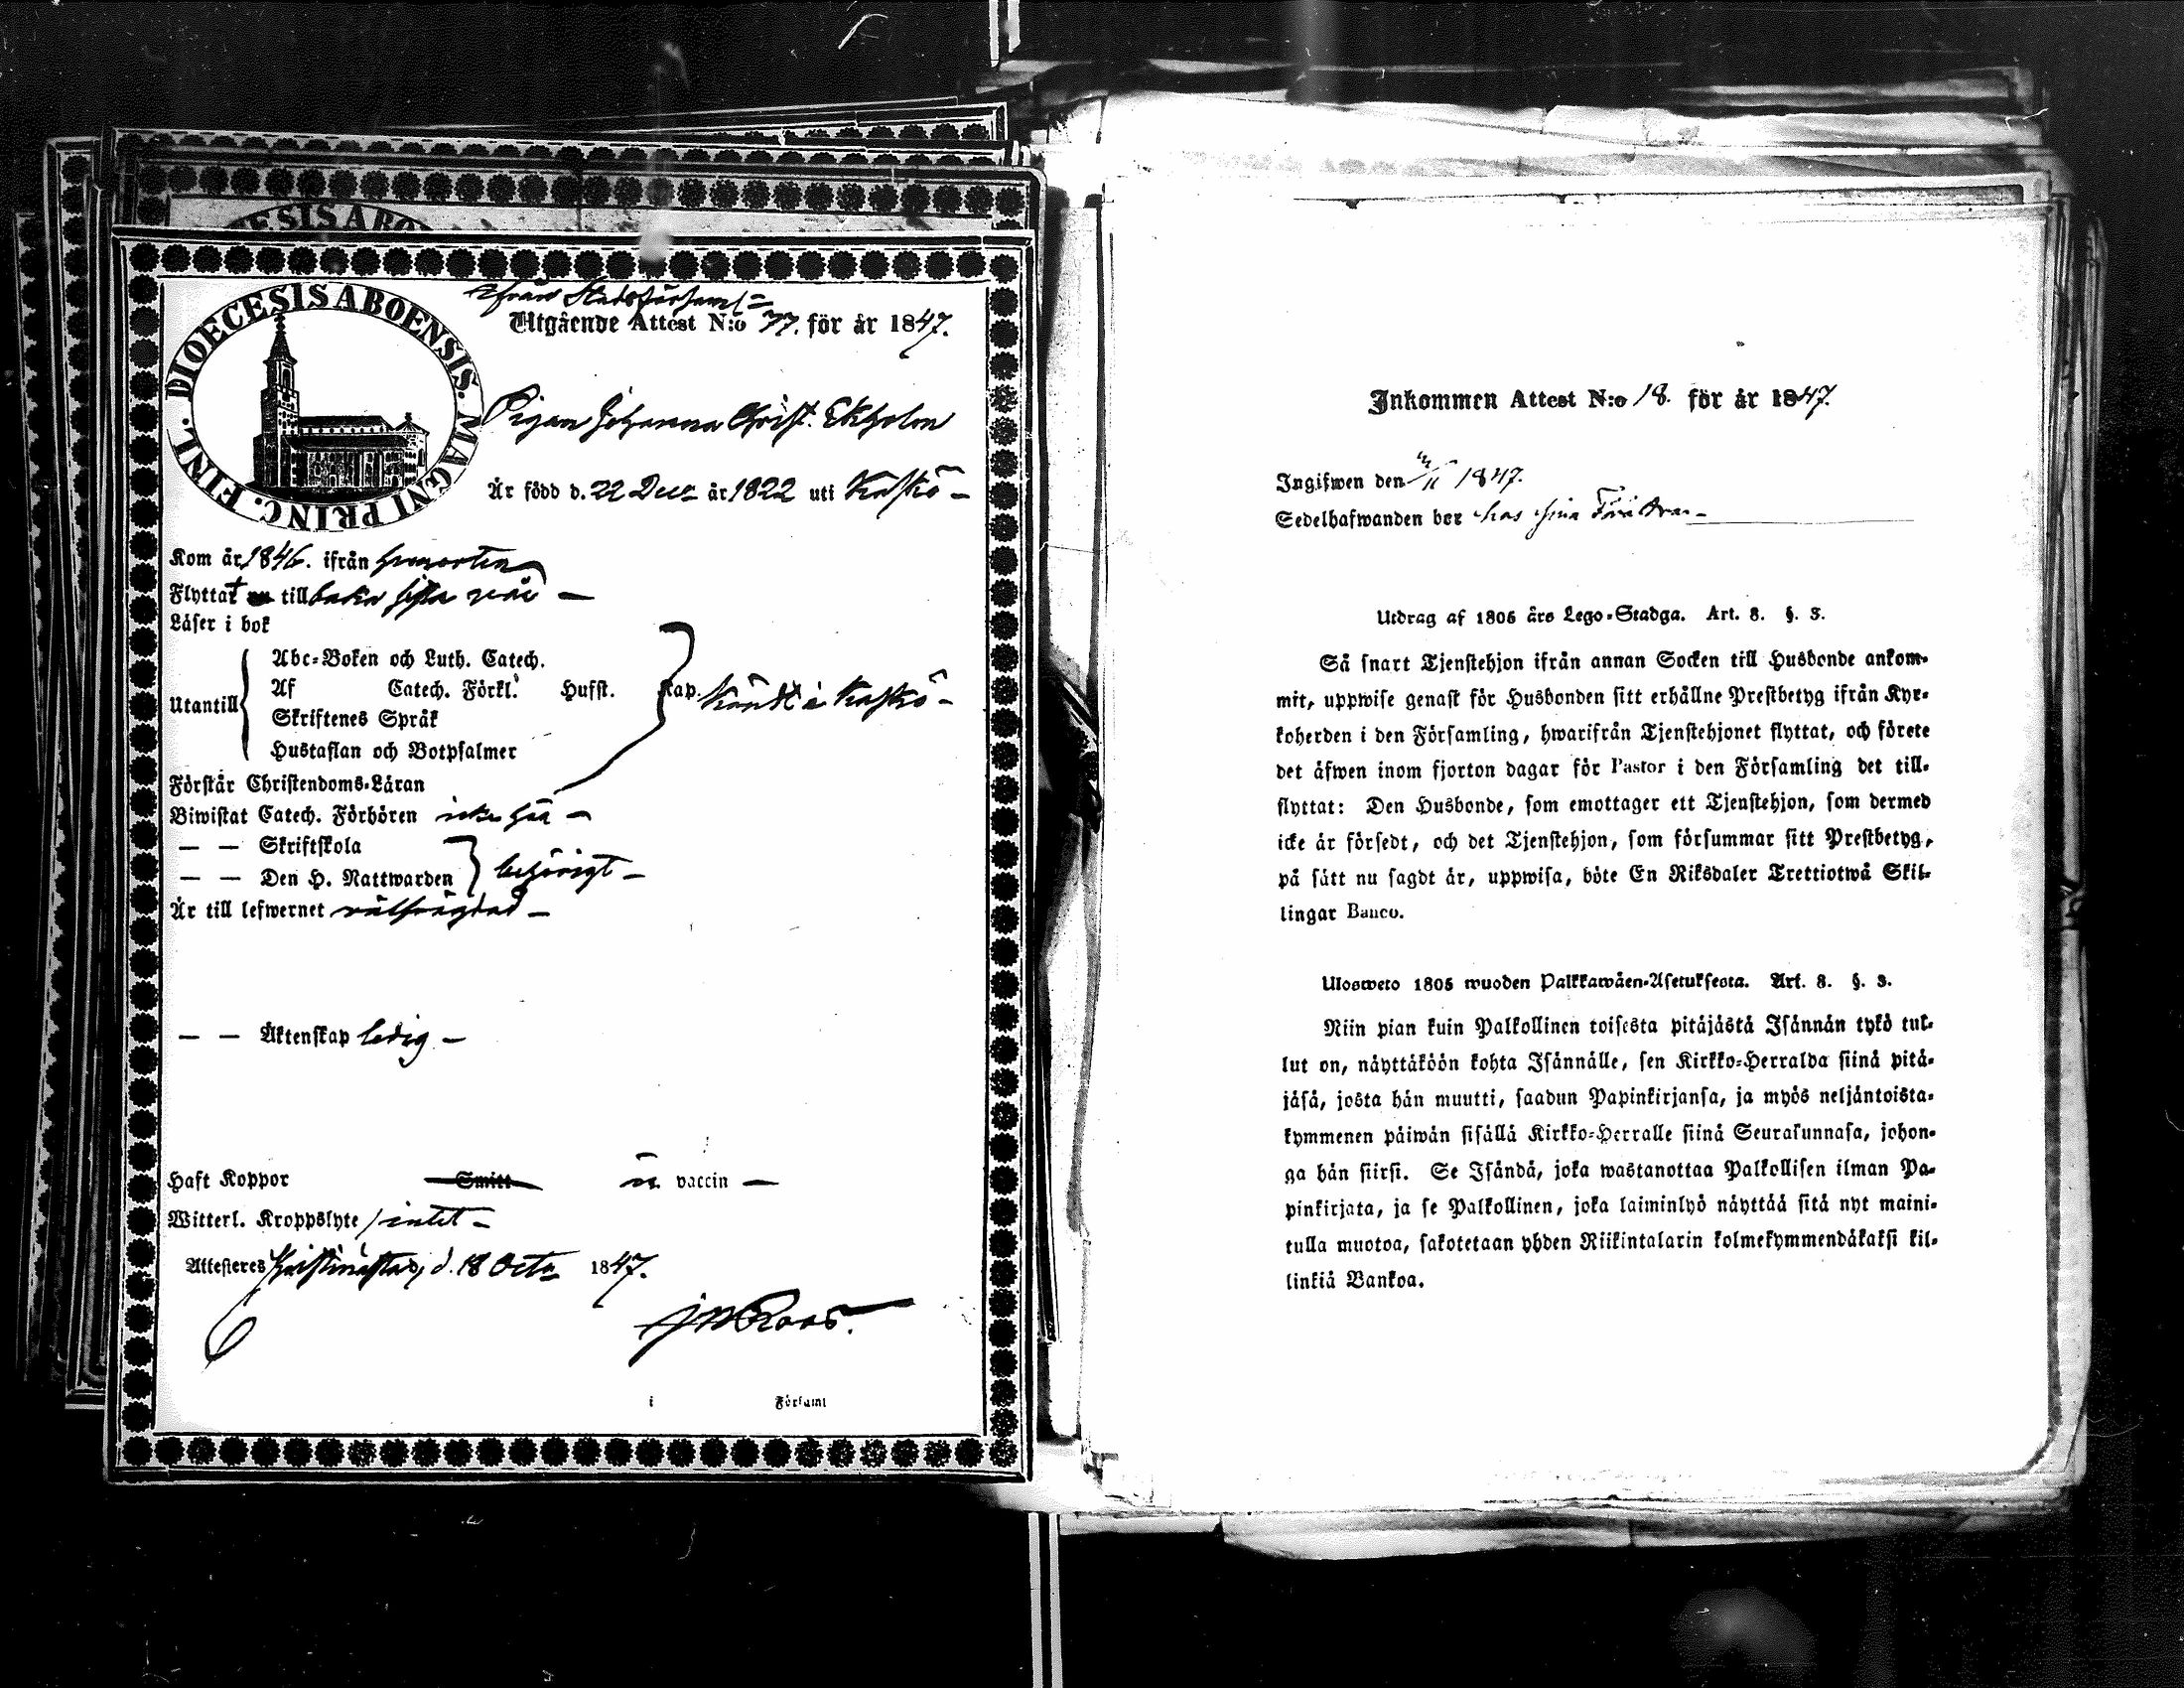 ESIS ABO
DIOECESIS ABOENSIS. MAGNI PRINC. FINL.
ifrån Stadsförsaml=
Utgående Attest N:o 77. för år 1847.
Pigan Johanna Christ. Ekholm
Är född d. 22 Dec år 1822 uti Kaskö –
Kom år 1846. ifrån hemorten
Flyttat till baka sista vår –
Läser i bok
Utantill
Abc-Boken och Luth. Catech.
Af Catech. Förkl. Husft. Kap.
Skriftenes Språk
Hustaflan och Botpsalmer
Kändt i Kaskö –
Förstår Christendoms-Läran
Biwistat Catech. Förhören icke här –
— — Skriftskola
— — Den H. Nattwarden behörigt –
Är till lefwernet välfrägdad –
— — Äktenskap ledig –
Haft Koppor Smitt vaccin —
Witterl. Kroppslyte intet –
Attesteres Kristinestad, d. 18 Octr 1847.
Roos.
i Församl
Inkommen Attest N:o 18. för år 1847.
Ingifwen den /11 1847.
Sedelhafwanden bor hos sina Föräldrar –
Utdrag af 1805 års Lego-Stadga. Art. 8. §. 3.
Så snart Tjenstehjon ifrån annan Socken till Husbonde ankom-
mit, uppwise genast för Husbonden sitt erhållne Prestbetyg ifrån Kyr-
koherden i den Församling, hwarifrån Tjenstehjonet flyttat, och förete
det äfwen inom fjorton dagar för Pastor i den Församling det till-
flyttat: Den Husbonde, som emottager ett Tjenstehjon, som dermed
icke är försedt, och det Tjenstehjon, som försummar sitt Prestbetyg,
på sätt nu sagdt är, uppwisa, böte En Riksdaler Trettiotwå Skil-
lingar Banco.
Ulosweto 1805 wuoden Palkkawäen-Asetuksesta. Art. 8. §. 3.
Niin pian kuin Palkollinen toisesta pitäjästä Isännän tykö tul-
lut on, näyttäköön kohta Isännälle, sen Kirkko-Herralda siinä pitä-
jäsä, josta hän muutti, saadun Papinkirjansa, ja myös neljäntoista-
kymmenen päiwän sisällä Kirkko-Herralle siinä Seurakunnasa, johon-
ga hän siirsi. Se Isändä, joka wastanottaa Palkollisen ilman Pa-
pinkirjata, ja se Palkollinen, joka laiminlyö näyttää sitä nyt maini-
tulla muotoa, sakotetaan yhden Riikintalarin kolmekymmendäkaksi kil-
linkiä Bankoa.